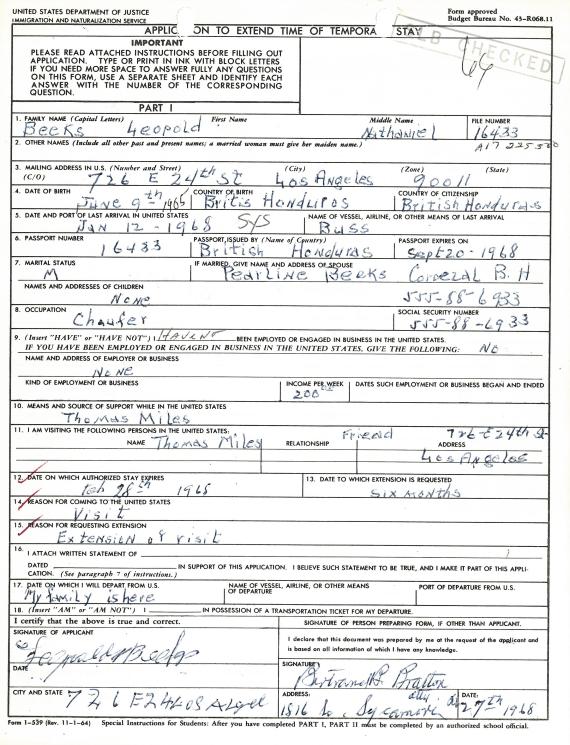 UNITED STATES DEPARTMENT OF JUSTICE
IMMIGRATION AND NATURALIZATION SERVICE
Form approved
Budget Bureau No. 43-R068.11
APPLIC ON TO EXTEND TIME OF TEMPORA STAY
CHECKED
IMPORTANT
PLEASE READ ATTACHED INSTRUCTIONS BEFORE FILLING OUT
APPLICATION. TYPE OR PRINT IN INK WITH BLOCK LETTERS
IF YOU NEED MORE SPACE TO ANSWER FULLY ANY QUESTIONS
ON THIS FORM, USE A SEPARATE SHEET AND IDENTIFY EACH
ANSWER WITH THE NUMBER OF THE CORRESPONDING
QUESTION.
PART I
1. FAMILY NAME (Capital Letters) First Name Middle Name FILE NUMBER
Beeks Leopold Nathaniel 16433
2. OTHER NAMES (Include all other past and present names; a married woman must give her maiden name.)
A17 225 5
3. MAILING ADDRESS IN U.S. (Number and Street) (City) (Zone) (State)
(C/O) 726 E 24th St Los Angeles 90011
4. DATE OF BIRTH COUNTRY OF BIRTH COUNTRY OF CITIZENSHIP
June 9th Britis Honduros British Honduras
5. DATE AND PORT OF LAST ARRIVAL IN UNITED STATES NAME OF VESSEL, AIRLINE, OR OTHER MEANS OF LAST ARRIVAL
Jan 12 - 1968 SYS Buss
6. PASSPORT NUMBER PASSPORT ISSUED BY (Name of Country) PASSPORT EXPIRES ON
16433 British Honduras Sept 20 - 1968
7. MARITAL STATUS IF MARRIED, GIVE NAME AND ADDRESS OF SPOUSE
M Pearline Beeks Corozal B. H
NAMES AND ADDRESSES OF CHILDREN
None 555-88-6933
8. OCCUPATION SOCIAL SECURITY NUMBER
Chaufer 555-88-6933
9. (Insert "HAVE" or "HAVE NOT") I HAVENT BEEN EMPLOYED OR ENGAGED IN BUSINESS IN THE UNITED STATES.
IF YOU HAVE BEEN EMPLOYED OR ENGAGED IN BUSINESS IN THE UNITED STATES, GIVE THE FOLLOWING: No
NAME AND ADDRESS OF EMPLOYER OR BUSINESS
None
KIND OF EMPLOYMENT OR BUSINESS INCOME PER WEEK DATES SUCH EMPLOYMENT OR BUSINESS BEGAN AND ENDED
200
10. MEANS AND SOURCE OF SUPPORT WHILE IN THE UNITED STATES
Thomas Miles
11. I AM VISITING THE FOLLOWING PERSONS IN THE UNITED STATES: Friend 726-E 24th St
NAME Thomas Miley RELATIONSHIP ADDRESS
Los Angeles
12. DATE ON WHICH AUTHORIZED STAY EXPIRES 13. DATE TO WHICH EXTENSION IS REQUESTED
Feb 28th 1968 Six months
14. REASON FOR COMING TO THE UNITED STATES
Visit
15. REASON FOR REQUESTING EXTENSION
Extension of visit
16. I ATTACH WRITTEN STATEMENT OF
DATED IN SUPPORT OF THIS APPLICATION. I BELIEVE SUCH STATEMENT TO BE TRUE, AND I MAKE IT PART OF THIS APPLI-
CATION. (See paragraph 7 of instructions.)
17. DATE ON WHICH I WILL DEPART FROM U.S. NAME OF VESSEL, AIRLINE, OR OTHER MEANS OF DEPARTURE PORT OF DEPARTURE FROM U.S.
My family is here
18. (Insert "AM" or "AM NOT") I IN POSSESSION OF A TRANSPORTATION TICKET FOR MY DEPARTURE.
I certify that the above is true and correct. SIGNATURE OF PERSON PREPARING FORM, IF OTHER THAN APPLICANT.
SIGNATURE OF APPLICANT I declare that this document was prepared by me at the request of the applicant and
is based on all information of which I have any knowledge.
Leopold N Beeks
DATE SIGNATURE
Bertrand Bratton
CITY AND STATE 726 E 24 Los Angel ADDRESS: 1816 So. Sycamore DATE: 27th 1968
Form I-539 (Rev. 11-1-64) Special Instructions for Students: After you have completed PART I, PART II must be completed by an authorized school official.